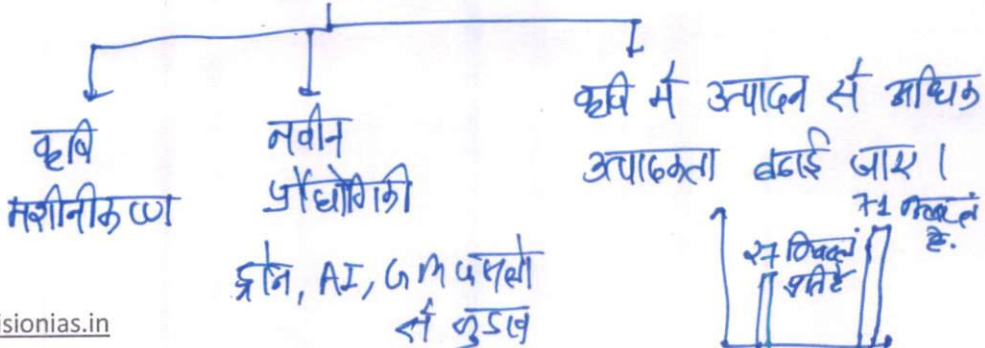 कृषि
मशीनीकरण
नवीन
प्रौद्योगिकी
ड्रोन, AI, GM फसलों
से जुड़ाव
कृषि में उत्पादन से अधिक
उत्पादकता बढ़ाई जाए।
27 क्विंटल
प्रति हे.
71 क्विंटल
हे.
isionias.in